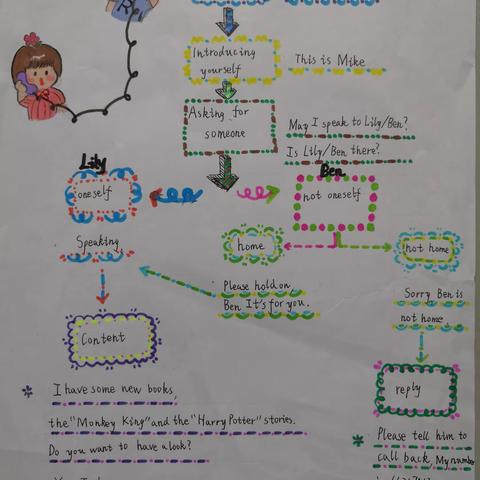 Be
Introducing
yourself
This is Mike
Asking for
someone
May I speak to Lily/Ben?
Is Lily/Ben there?
Lily
oneself
Ben
not oneself
Speaking
home
not home
Please hold on,
Ben It's for you.
Sorry Ben is
not home
Content
reply
* I have some new books,
the "Monkey King" and the "Harry Potter" stories.
Do you want to have a look?
* Please tell him to
call back. My number